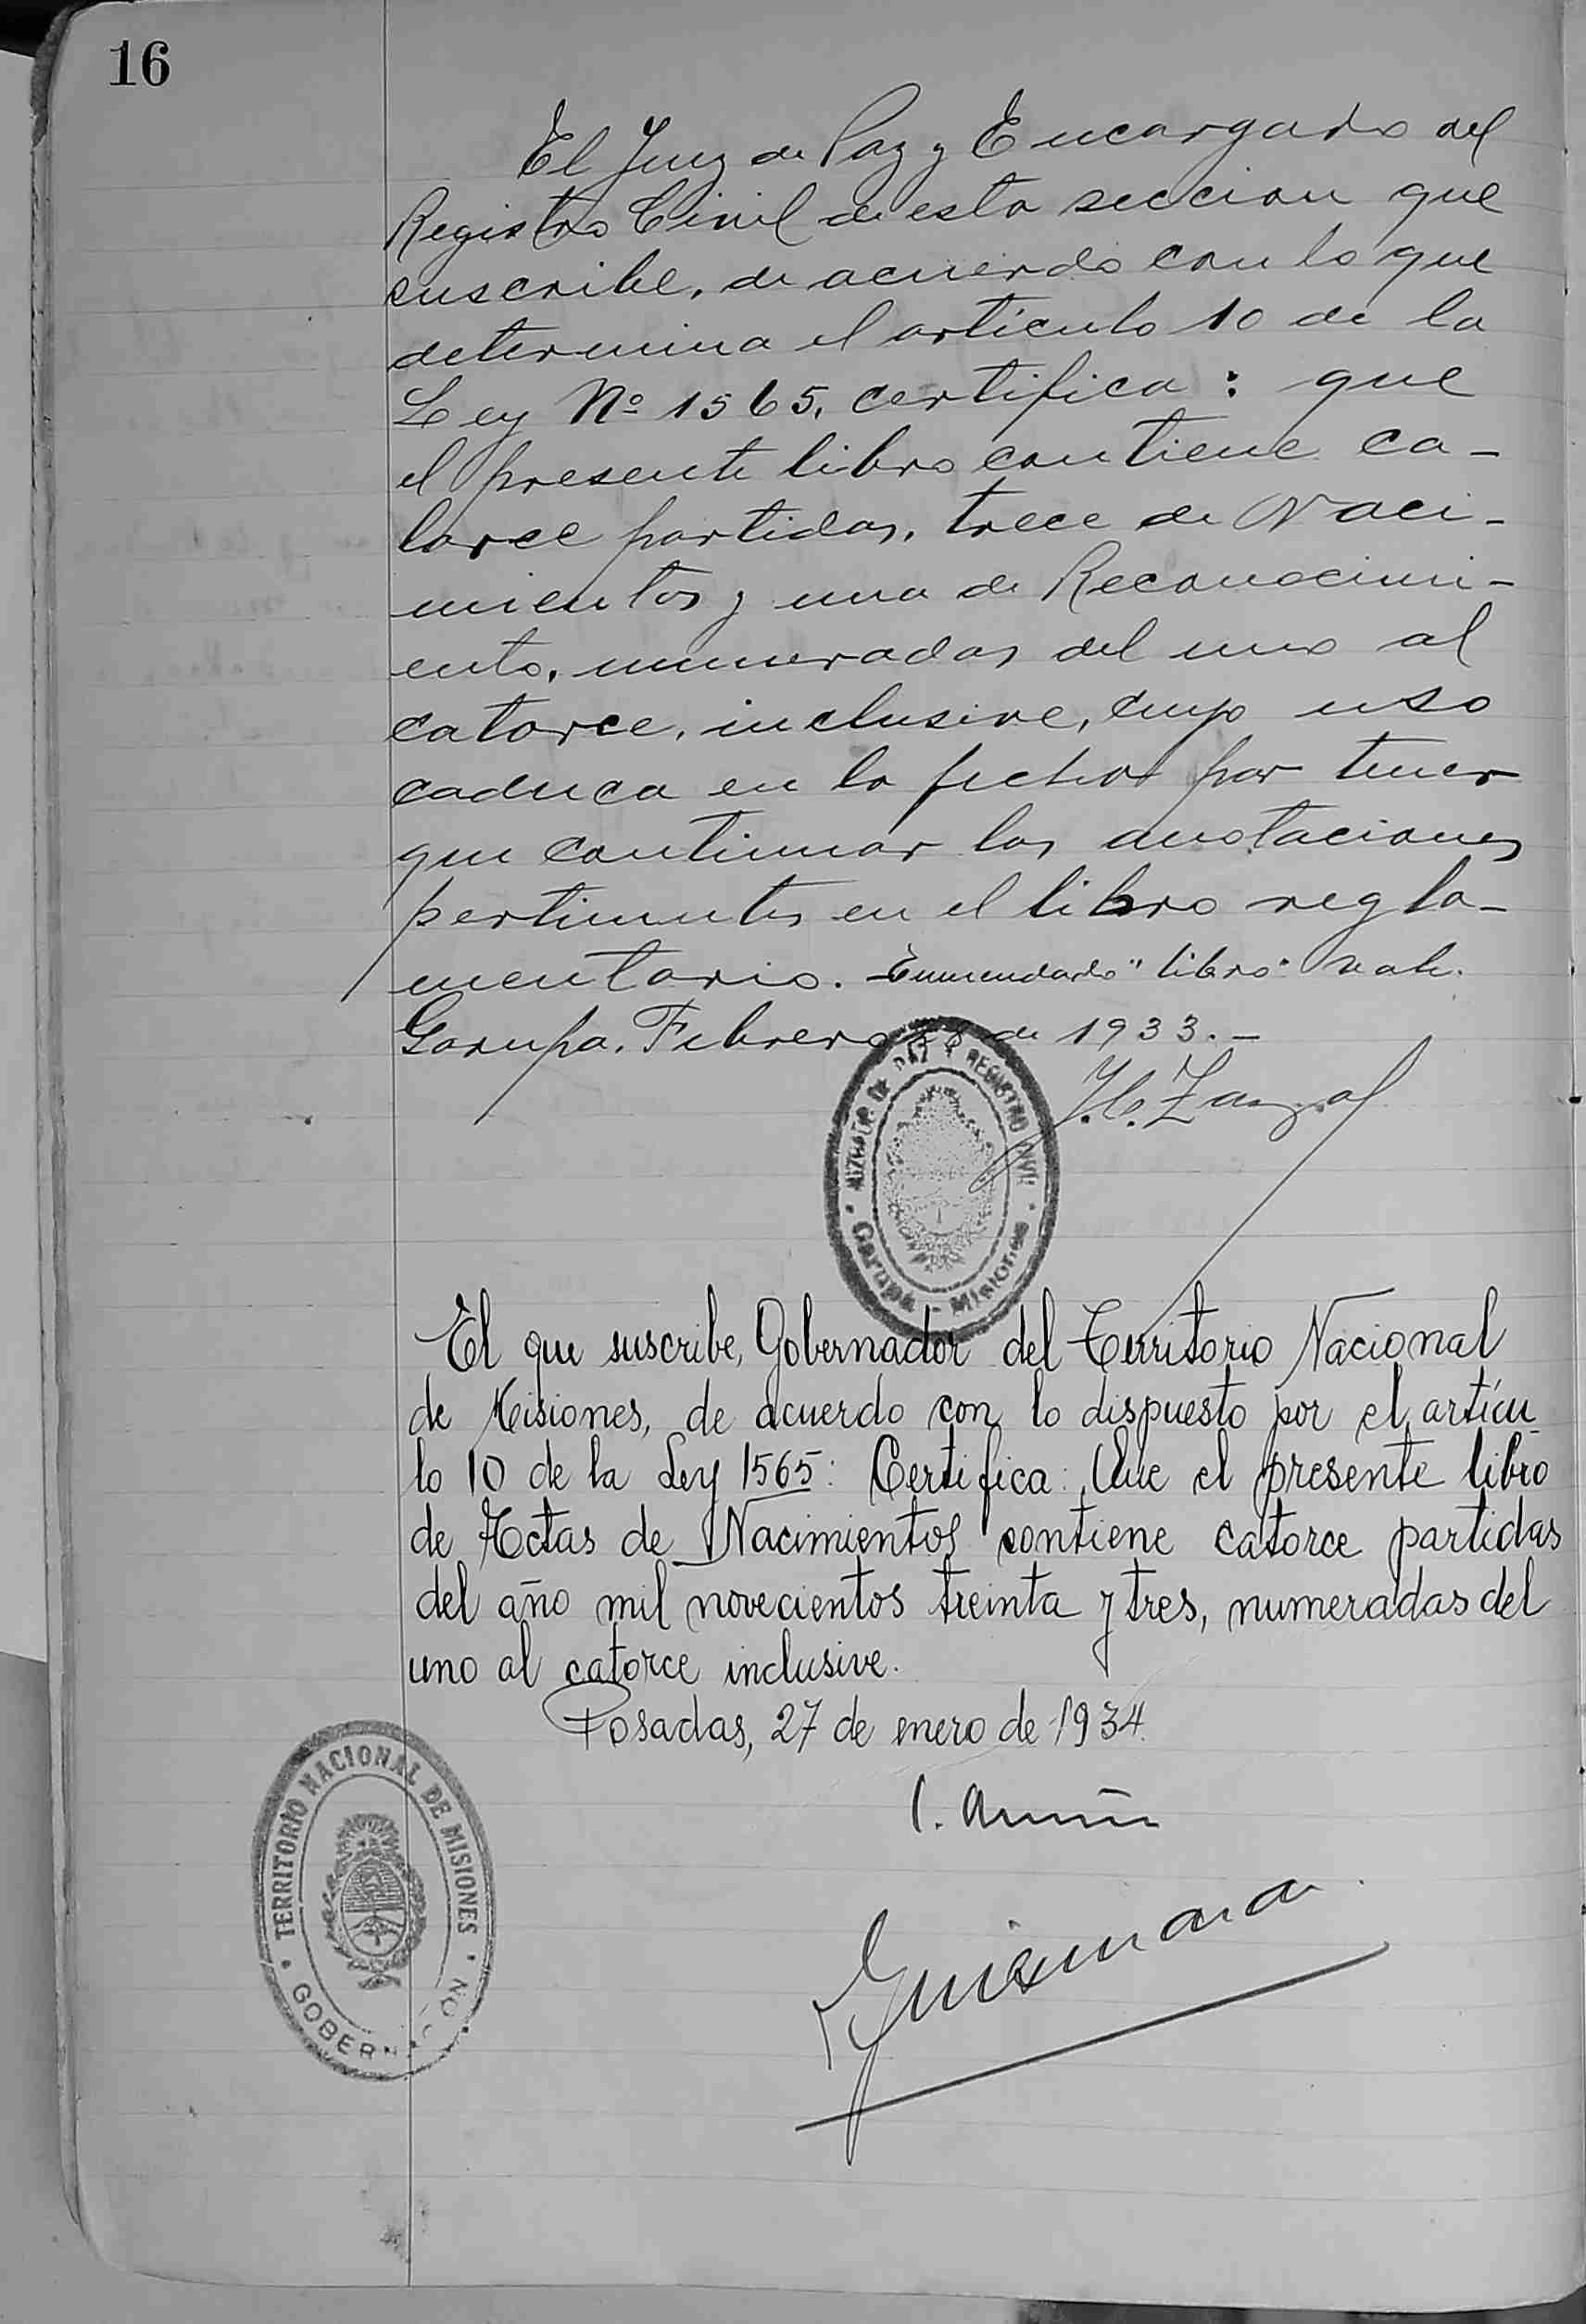 16
El Juez de Paz y Encargado del
Registro Civil de esta seccion que
suscribe, de acuerdo con lo que
determina el artículo 10 de la
Ley Nº 1565, certifica: que
el presente libro contiene ca-
torce partidas, trece de Naci-
mientos y una de Reconocimi-
ento, numeradas del uno al
catorce, inclusive, cuyo uso
caduca en la fecha por tener
que continuar las anotaciones
pertinentes en el libro regla-
mentario. Enmendado "libro" vale.
Garupa, Febrero 28 de 1933.-
JUZGADO DE PAZ Y REGISTRO CIVIL
Garupá - Misiones
El que suscribe, Gobernador del Territorio Nacional
de Misiones, de acuerdo con lo dispuesto por el artícu-
lo 10 de la Ley 1565: Certifica: Que el presente libro
de Actas de Nacimientos contiene catorce partidas
del año mil novecientos treinta y tres, numeradas del
uno al catorce inclusive.
Posadas, 27 de enero de 1934.
TERRITORIO NACIONAL DE MISIONES
GOBERNACION